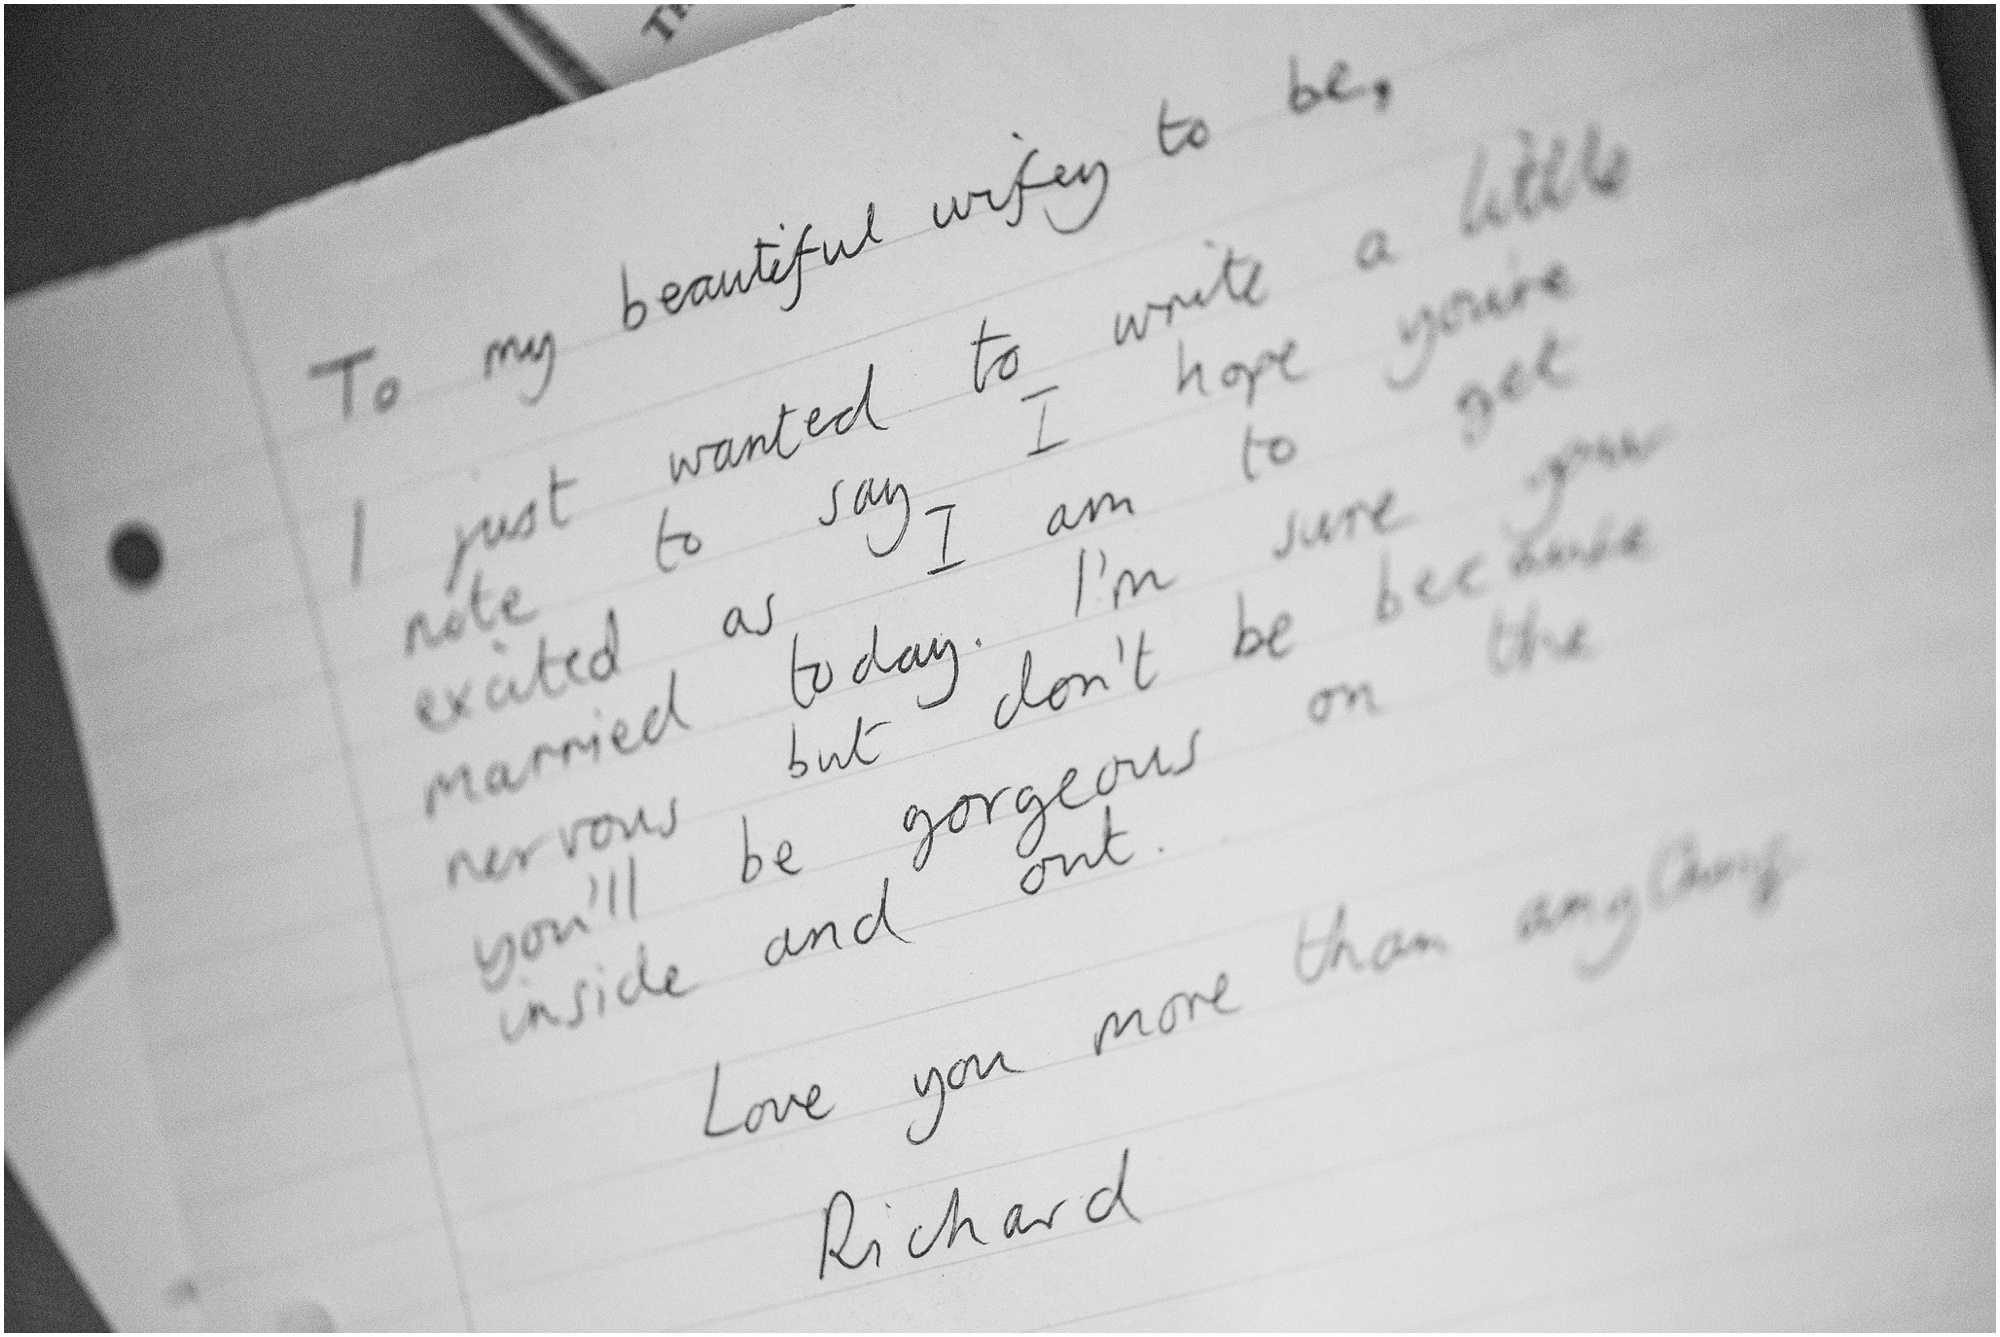 Th
To my beautiful wifey to be,
I just wanted to write a little
note to say I hope you're
excited as I am to get
married today. I'm sure your
nervous but don't be because
you'll be gorgeous on the
inside and out.
Love you more than anything
Richard